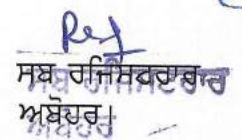 ਸਬ ਰਜਿਸਟਰਾਰ
ਅਬੋਹਰ।